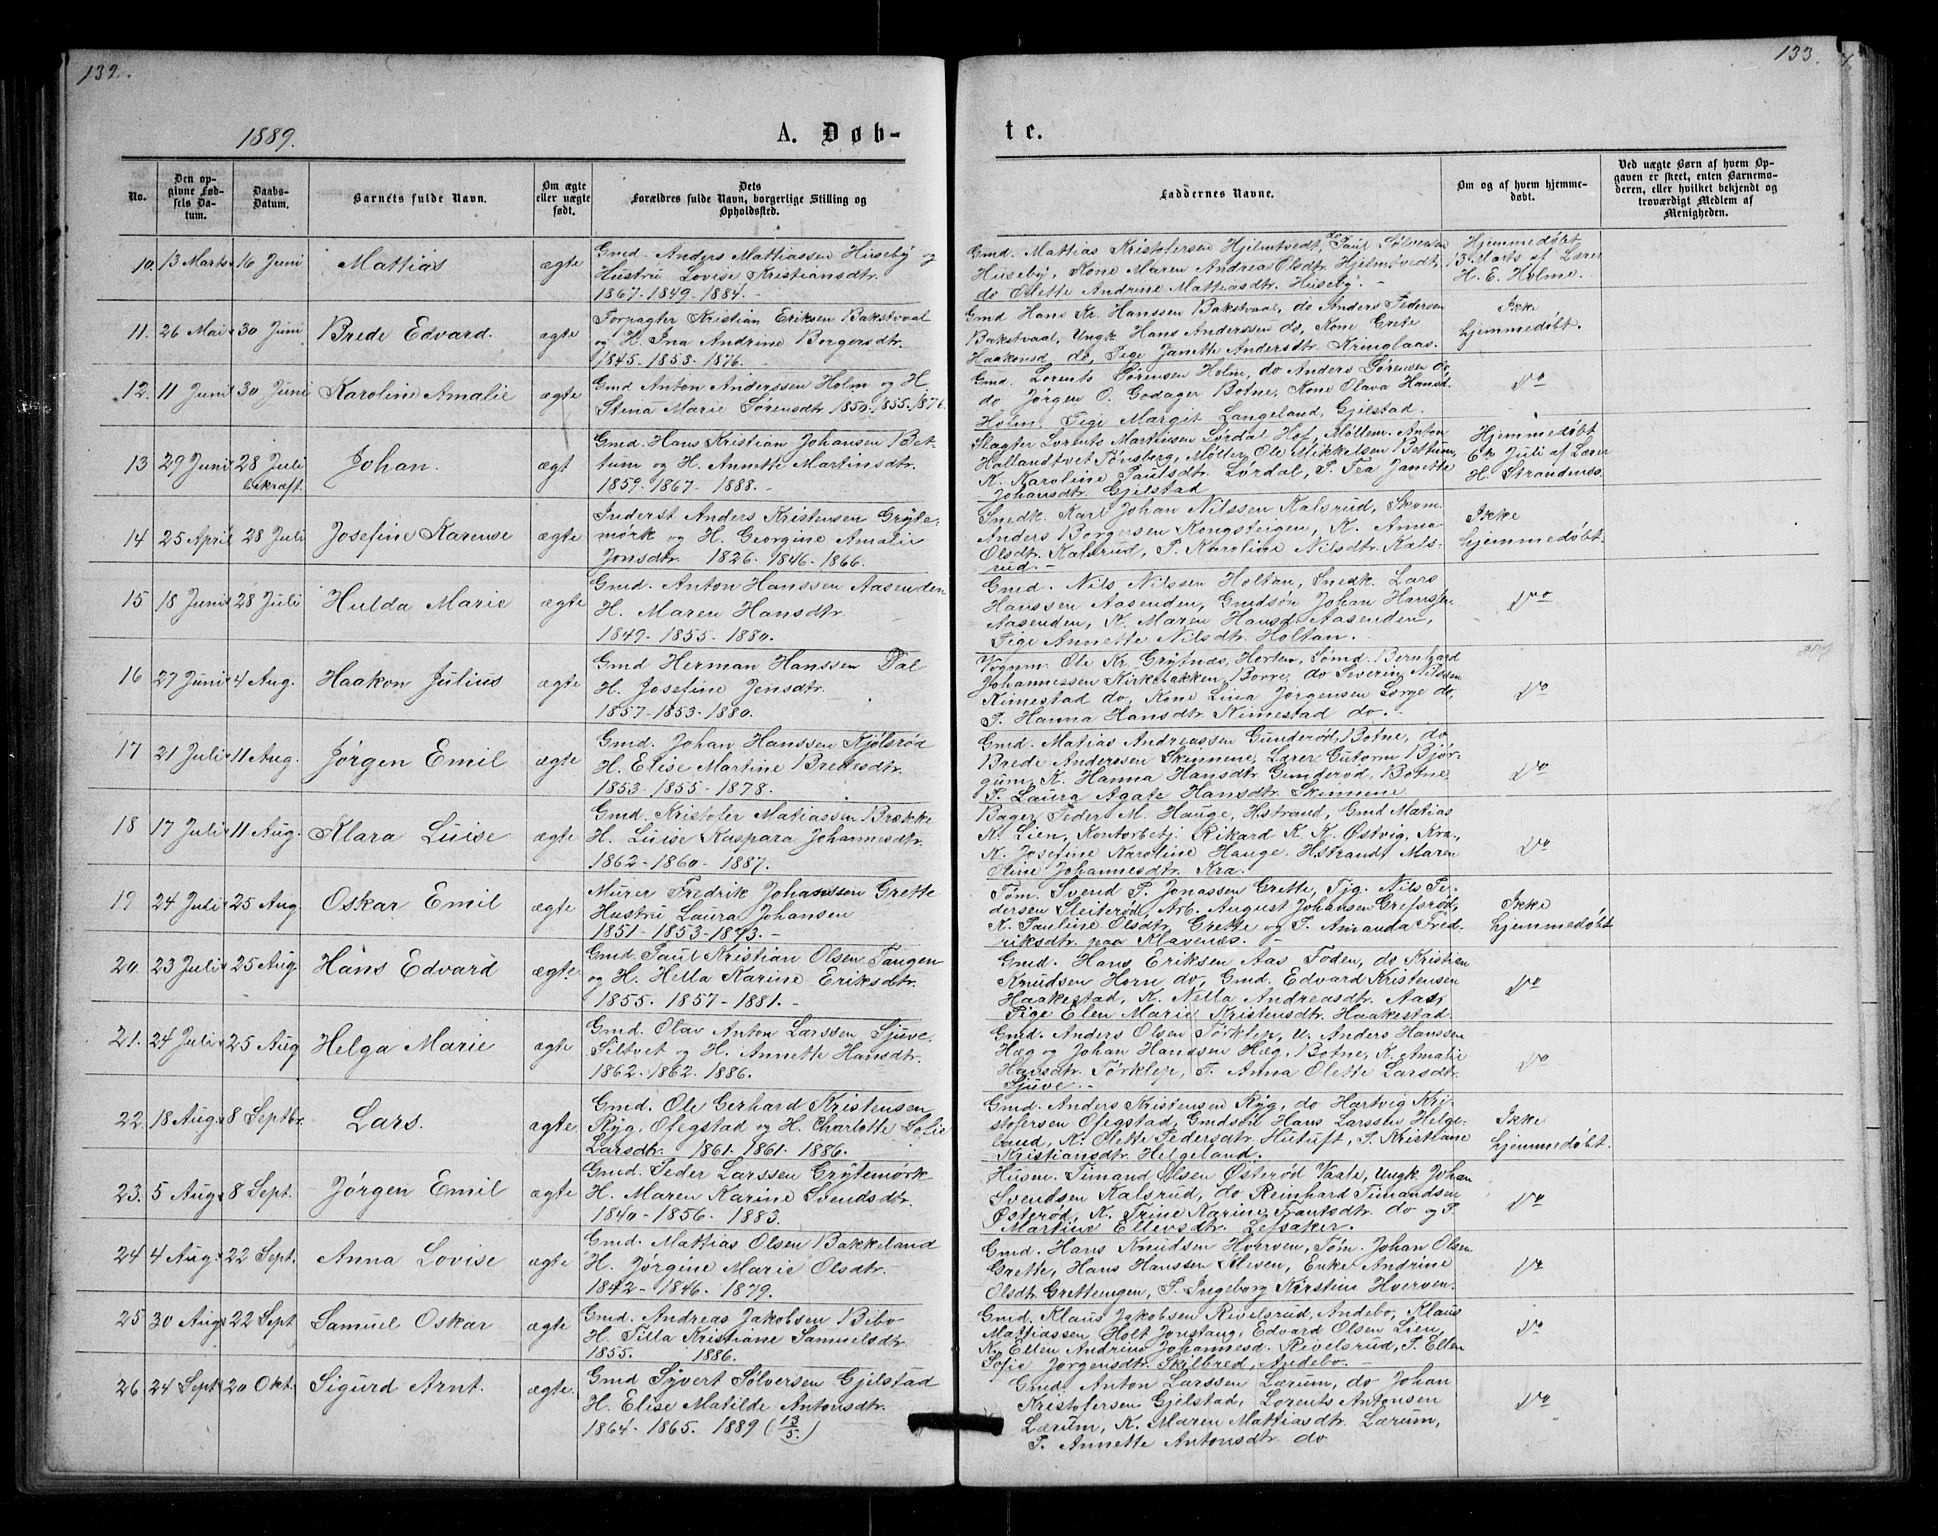 132.
133.
1889.
A. Døb-
te.
No.
Den op-
givne Fød-
sels Da-
tum.
Daabs-
Datum.
Barnets fulde Navn.
Om ægte
eller uægte
født.
Dets
Forældres fulde Navn, borgerlige Stilling og
Opholdssted.
Faddernes Navne.
Om og af hvem hjemme-
døbt.
Ved uægte Børn af hvem Op-
gaven er skeet, enten Barnemo-
deren, eller hvilket bekjendt og
troværdigt Medlem af
Menigheden.
10. 13 Marts 16 Juni Mattias ægte
Gmd. Anders Mattiassen Huseby og
Hustru Lovise Kristiansdtr.
1867-1849-1884.-
Gmd. Mattias Kristofersen Hjelmtvedt, do Paul Sølversen
Huseby, Kone Maren Andrea Olsdtr. Hjelmtvedt,
do Olette Andrine Mattiasdtr. Huseby.-
Hjemmedøbt
13 Marts af Lærer
H. E. Holme.
11. 26 Mai 30 Juni Brede Edvard. ægte
Forpagter Kristian Eriksen Bakstvaal
og H. Ina Andrine Borgersdtr.
1845. 1853-1876.-
Gmd Hans Kr. Hanssen Bakstvaal, do Anders Pedersen
Bakstvaal, Ungk. Hans Anderssen do, Kone Grete
Haakonsd do, Pige Janette Andersdtr. Kringlaas.
Ikke
hjemmedøbt.
12. 11 Juni 30 Juni Karoline Amalie ægte
Gmd Anton Anderssen Holm og H.
Stina Marie Sørensdtr. 1850-1855-1876.
Gmd. Lorents Sørensen Holm, do Anders Sørensen do,
do Jørgen O. Godager Botne, Kone Olava Hansd.
Holm, Pige Margit Langeland, Gjelstad.
do
13 29 Juni 28 Juli
bekræft. Johan. ægt
Gmd. Hans Kristian Johansen Bet-
tum og H. Annette Martinsdtr.
1859-1867-1888.-
Slagter Lorents Martinsen Lørdal Hof, Møllem. Anton
Hallandtvet Tønsberg, Møller Ole Mikkelsen Bettum,
K. Karoline Paulsdtr. Lørdal, P. Tea Janette
Johansdtr. Gjelstad
Hjemmedøbt
6te Juli af Lærer
H. Strandenæs.
14 25 April 28 Juli Josefine Karense ægte
Inderst Anders Kristensen Gryte-
mørk og H. Georgine Amalie
Jonsdtr. 1826-1846-1866.
Smedk. Karl Johan Nilssen Kalsrud, Skom.
Anders Borgersen Kongsteigen, K. Anna
Olsdtr. Kalsrud, P. Karoline Nilsdtr. Kals-
rud.-
Ikke
hjemmedøbt.
15 18 Juni 28 Juli Hulda Marie ægte
Gmd. Anton Hanssen Aasenden
H. Maren Hansdtr.
1849-1855-1880.
Gmd. Nils Nilssen Holtan, Snedk. Lars
Hanssen Aasenden, Gmdsøn Johan Hanssen
Aasenden, K. Maren Hansd. Aasenden,
Pige Annette Nilsdtr. Holtan.-
do
16 27 Juni 4 Aug. Haakon Julius ægte
Gmd Herman Hanssen Dal
H. Josefine Jensdtr.
1857-1853-1880.
Vognm. Ole Kr. Grytnæs, Horten, Sømd. Bernhard
Johannessen Kirkebakken, Borre, do Severin Nilssen
Nimestad do, Kone Lina Jørgensen Sørge do,
P. Hanna Hansdtr. Nimestad do.-
do
17 21 Juli 11 Aug. Jørgen Emil ægte
Gmd. Johan Hanssen Kjølsrød
H. Elise Martine Bredesdtr.
1853-1855-1878.
Gmd. Matias Andreassen Gunderød, Botne, do
Brede Anderssen Skinnene, Lærer Gutorm Bjør-
gum, K. Hanna Hansdtr. Gunderød, Botne,
P. Laura Agate Hansdtr. Skinnene.
do
18 17 Juli 11 Aug. Klara Luise ægte
Gmd. Kristofer Matiassen Brekke
H. Luise Kaspara Johannesdtr.
1862-1860-1887.
Bager Peder M. Hauge, Hstrand, Gmd Matias
K. Lien, Kontorbetj. Rikard K. K. Østvig, Kra.,
K. Josefine Karoline Hauge, Hstrand, Maren
Oline Johannesdtr. Kra.
do
19 24 Juli 25 Aug Oskar Emil ægte
Murer Fredrik Johanssen Grette
Hustru Laura Johansen
1851-1853-1873.-
Tøm. Svend P. Jonassen Grette, Tjg. Nils Pe-
dersen Sleiterød, Arb. August Johansen Grefsrød,
K. Pauline Olsdtr. Grette og P. Amanda Fred-
riksdtr. paa Klavenæs.-
Ikke
hjemmedøbt
20. 23 Juli 25 Aug. Hans Edvard ægte.
Gmd. Paul Kristian Olsen Tangen
og H. Hella Karine Eriksdtr.
1855. 1857-1881.-
Gmd. Hans Eriksen Aas Foden, do Kristian
Knudsen Horn do, Gmd. Edvard Kristensen
Haakestad, K. Nella Andreasdtr. Aas,
Pige Elen Marie Kristensdtr. Haakestad.
do
21. 24 Juli 25 Aug Helga Marie ægte
Gmd. Olav Anton Larssen Sjuve,
Siltvet og H. Annette Hansdtr.
1862-1862-1886.
Gmd. Anders Olsen Tørklep, U. Anders Hanssen
Hæg og Johan Hanssen Hæg, Botne, K. Amalie
Hansdtr. Tørklep, P. Anna Olette Larsdtr.
Sjuve.-
do
22. 18 Aug. 8 Septbr. Lars. ægte.
Gmd. Ole Gerhard Kristensen
Ryg, Ofegstad og H. Charlotte Sofie
Larsdtr. 1861-1861-1886.
Gmd. Anders Kristensen Ryg, do Hartvig Kri-
stofersen Ofegstad, Gmdsøn Hans Larssen Helge-
land, K. Olette Pedersdtr. Hutuft, P. Kristiane
Kristiansdtr. Helgeland.
Ikke
hjemmedøbt.
23. 5 Aug 8 Sept. Jørgen Emil ægte
Gmd. Peder Larssen Grytemørk
H. Maren Karine Svendsdtr.
1840-1856-1883.
Husm. Timand Olsen Østerød Vaale, Ungk. Johan
Svendsen Kalsrud, do Reinhard Timandsen
Østerød, K. Trine Karine Frantsdtr. do og P.
Martine Ellevsdtr. Lefsaker.
do
24 4 Aug 22 Sept. Anna Lovise ægte
Gmd. Mattias Olsen Bakkeland
H. Jørgine Marie Olsdtr.
1842-1846-1879.
Gmd. Hans Knudsen Hverven, Tøm. Johan Olsen
Grette, Hans Hanssen Ølleven, Enke Andrine
Olsdtr. Gretteengen, P. Ingeborg Kirstine Hverven.
do
25 30 Aug 22 Sept Samuel Oskar ægte
Gmd. Andreas Jakobsen Bibo
H. Silla Kristiane Samuelsdtr.
1855. 1886.
Gmd. Klaus Jakobsen Rivelsrud, Andebo, Klaus
Mattiassen Holt Jonstang, Edvard Olsen Lien,
K. Ellen Andrine Johannesd. Rivelsrud, P. Ellen
Sofie Jørgensdtr. Skilbred, Andebo.-
do
26 24 Sept 20 Okt. Sigurd Arnt. ægte.
Gmd Syvert Sølversen Gjelstad
H. Elise Matilde Antonsdtr.
1864-1865. 1889 (13/5.)
Gmd. Anton Larssen Lærum, do Johan
Kristofersen Gjelstad, Lorents Antonsen
Lærum, K. Maren Mattiasdtr. Lærum,
P. Annette Antonsdtr. do
do